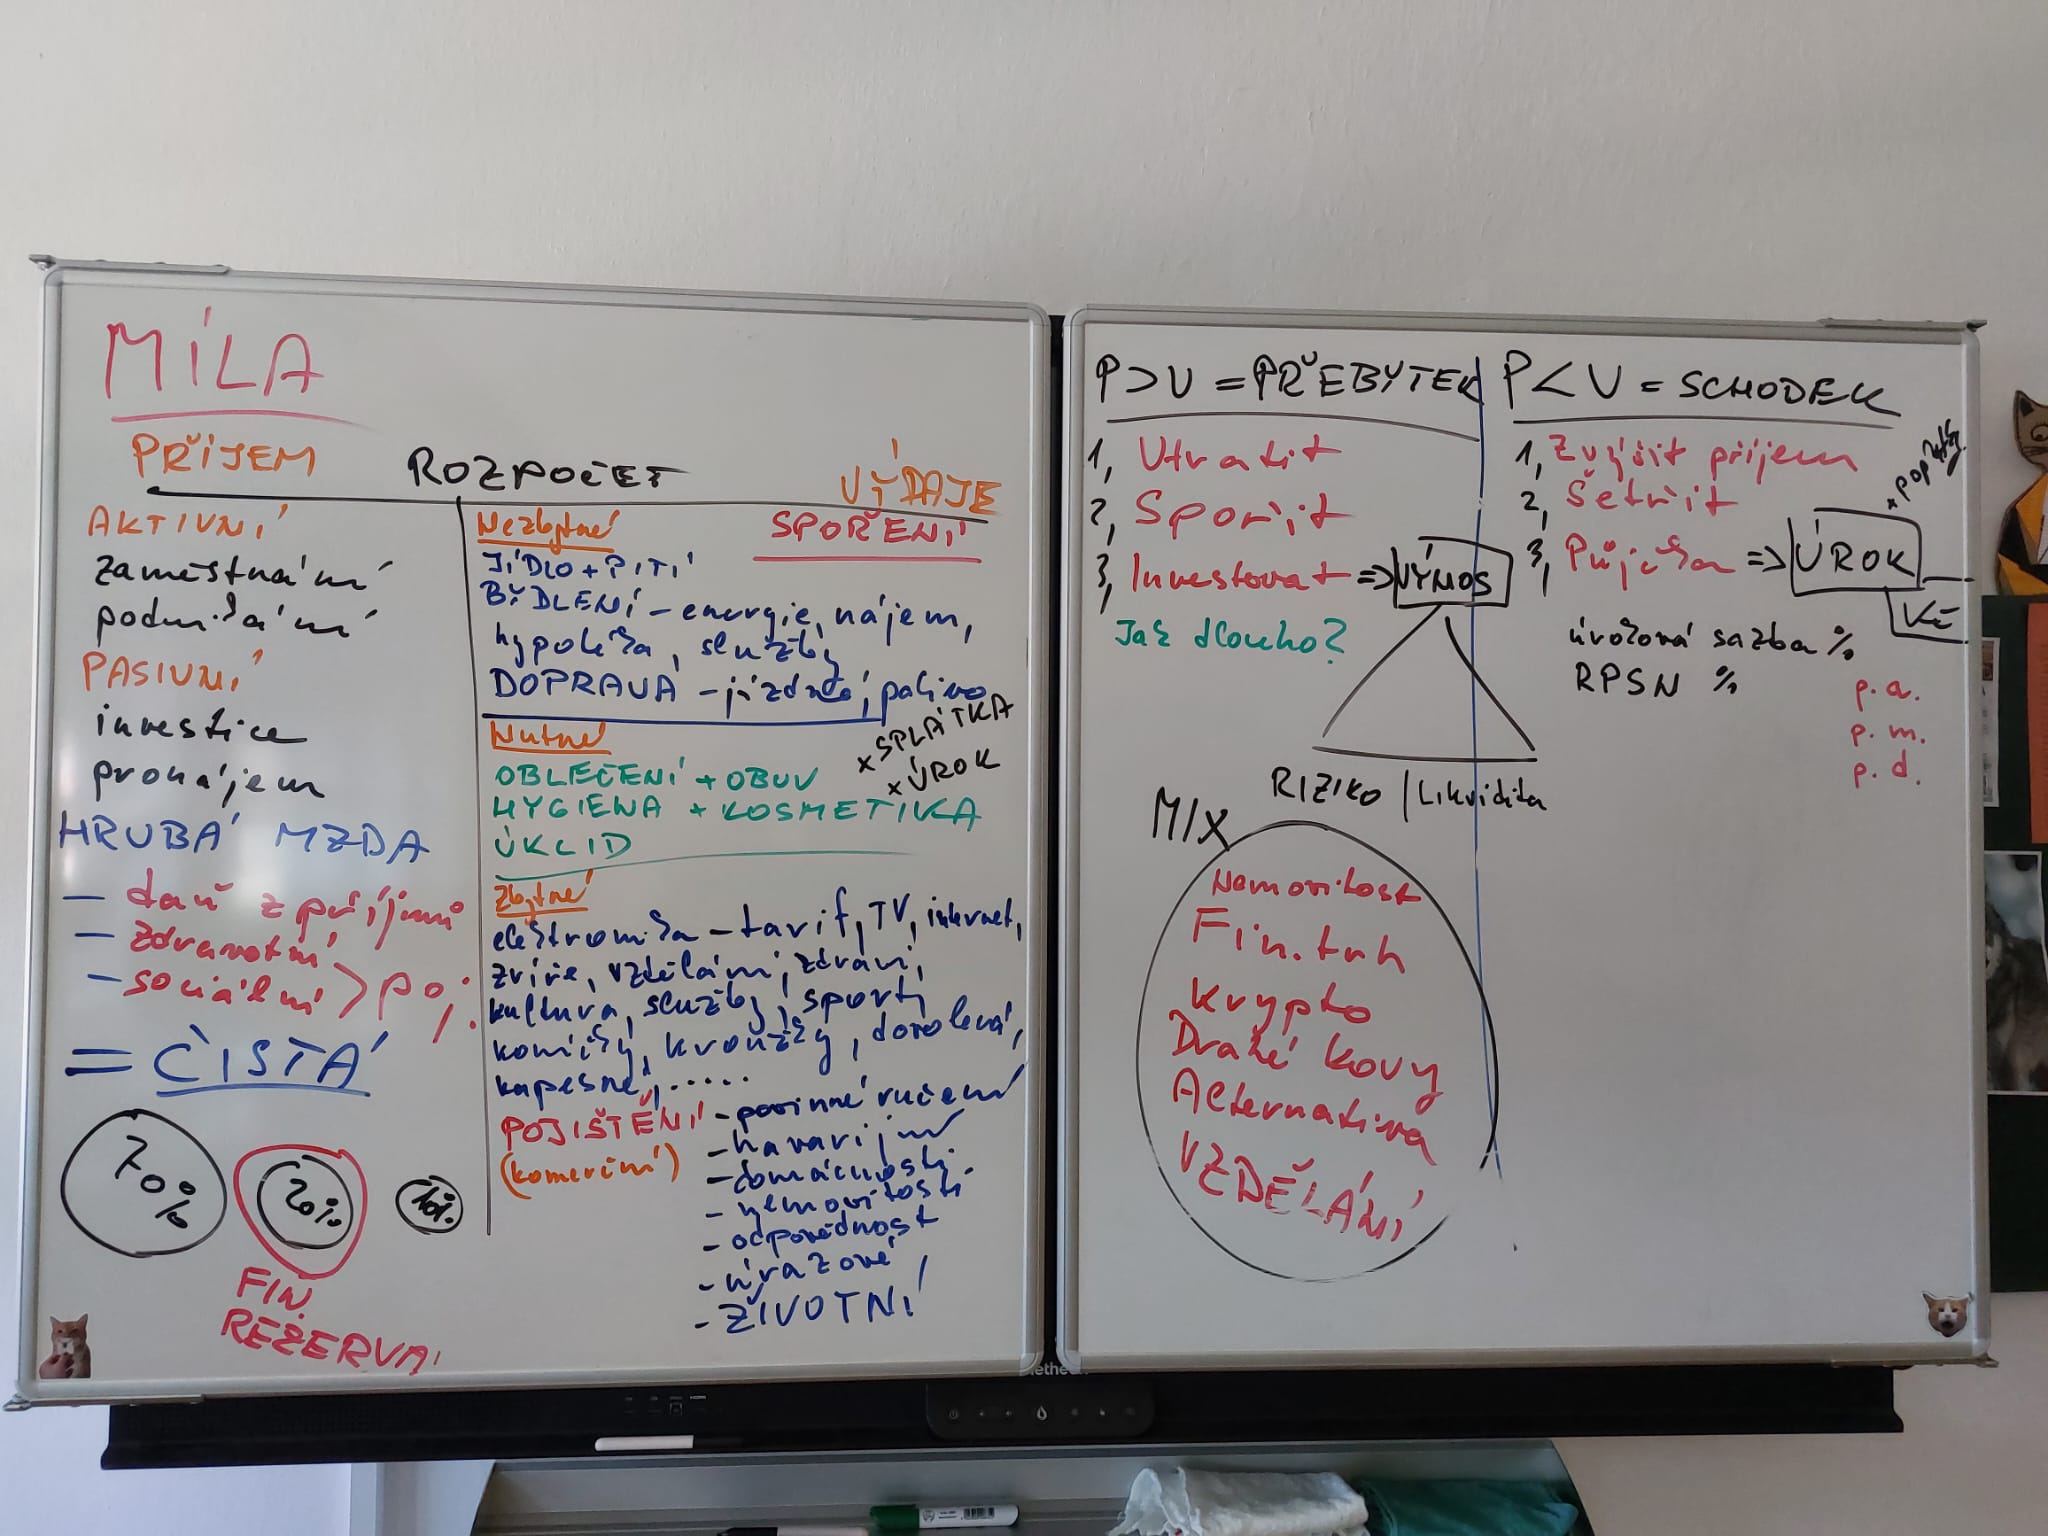 MÍLA
PŘÍJEM
ROZPOČET
VÝDAJE
AKTIVNÍ
zaměstnání
podnikání
PASIVNÍ
investice
pronájem
HRUBÁ MZDA
- daň z příjmů
- zdravotní
- sociální > poj.
= ČISTÁ
70%
20%
10%
FIN.
REZERVA
Nezbytné
SPOŘENÍ
JÍDLO + PITÍ
BYDLENÍ - energie, nájem,
hypotéka, služby
DOPRAVA - jízdné, palivo
Nutné
x SPLÁTKA
x ÚROK
OBLEČENÍ + OBUV
HYGIENA + KOSMETIKA
ÚKLID
Zbytné
elektronika - tarif, TV, internet,
zvíře, vzdělání, zdraví,
kultura, služby, sporty
koníčky, kroužky, dovolená,
kapesné, .....
POJIŠTĚNÍ - povinné ručení
(komerční)
- havarijní
- domácnosti
- nemovitosti
- odpovědnost
- úrazové
- ŽIVOTNÍ
P > V = PŘEBYTEK
1, Utratit
2, Spořit
3, Investovat => VÝNOS
Jak dlouho?
RIZIKO / Likvidita
MIX
Nemovitost
Fin. trh
Krypto
Drahé kovy
Alternativa
VZDĚLÁNÍ
P < V = SCHODEK
1, Zvýšit příjem
2, Šetřit
3, Půjčka => ÚROK
x poplatky
Kč
úvěrová sazba %
RPSN %
p. a.
p. m.
p. d.